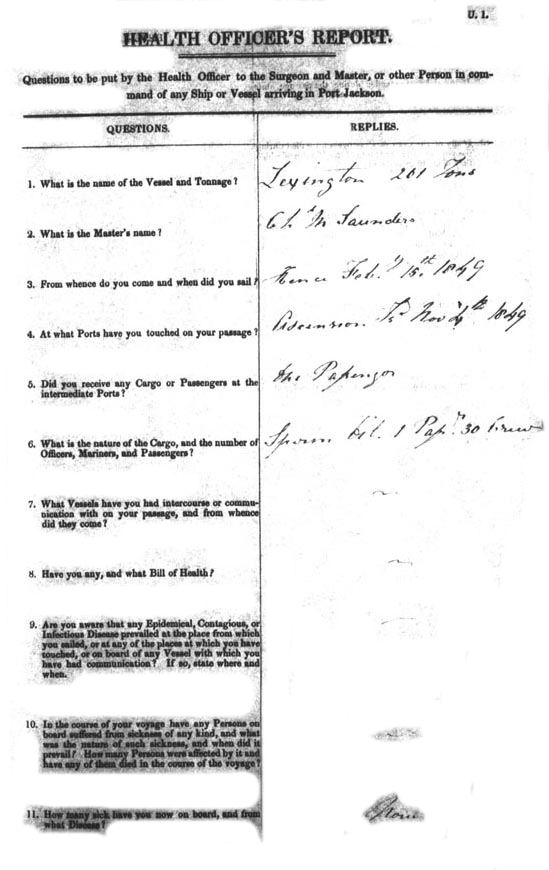 U. 1.
HEALTH OFFICER'S REPORT.
Questions to be put by the Health Officer to the Surgeon and Master, or other Person in com-
mand of any Ship or Vessel arriving in Port Jackson.
QUESTIONS.
REPLIES.
1. What is the name of the Vessel and Tonnage ?
Lexington 201 Tons
2. What is the Master's name ?
Saunders
3. From whence do you come and when did you sail ?
Hence Feb.y 15th. 1849
4. At what Ports have you touched on your passage ?
Ascension Nov 4th 1849
5. Did you receive any Cargo or Passengers at the
intermediate Ports ?
One Passenger
6. What is the nature of the Cargo, and the number of
Officers, Mariners, and Passengers ?
Sperm Oil. 1 Pasr. 30 Crew
7. What Vessels have you had intercourse or commu-
nication with on your passage, and from whence
did they come ?
8. Have you any, and what Bill of Health ?
9. Are you aware that any Epidemical, Contagious, or
Infectious Disease prevailed at the place from which
you sailed, or at any of the places at which you have
touched, or on board of any Vessel with which you
have had communication ? If so, state where and
when.
10. In the course of your voyage have any Persons on
board suffered from sickness of any kind, and what
was the nature of such sickness, and when did it
prevail ? How many Persons were affected by it and
have any of them died in the course of the voyage ?
11. How many sick have you now on board, and from
what Disease ?
None